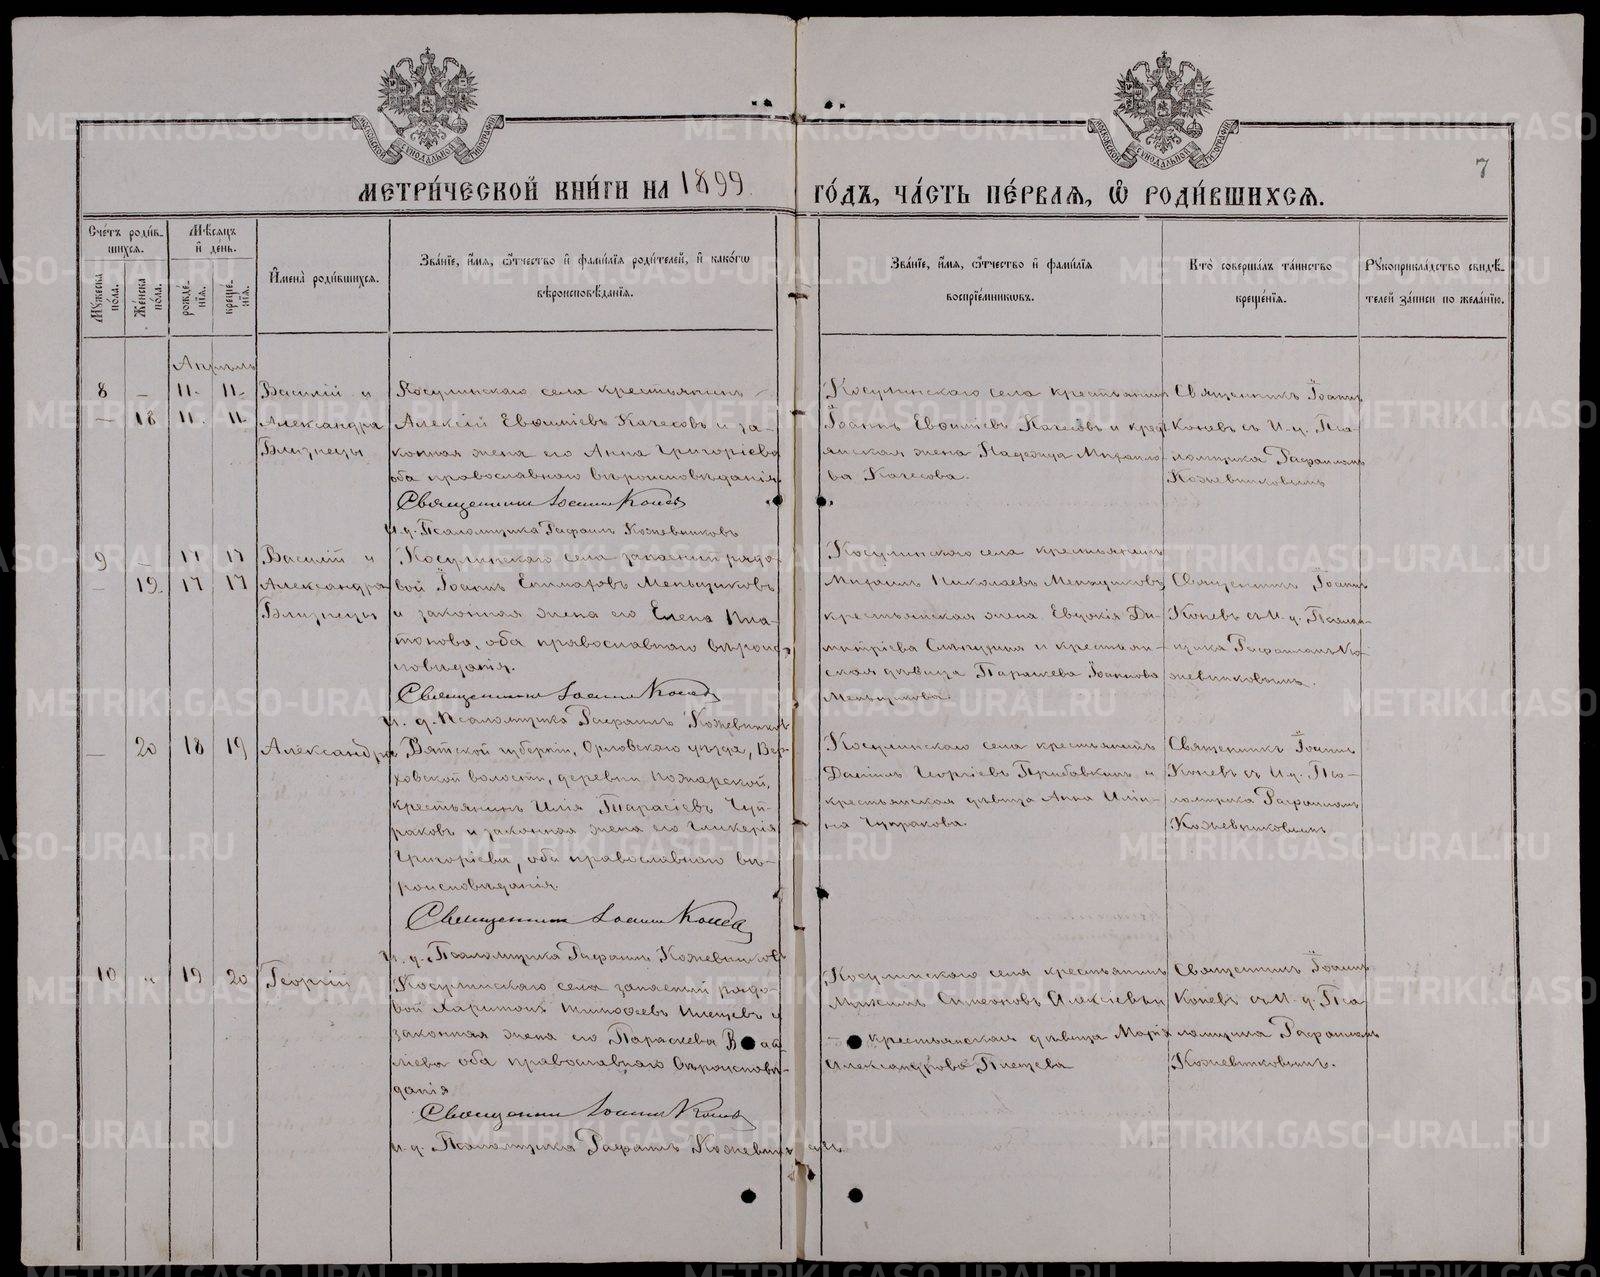 МЕТРИ́ЧЕСКОЙ КНИ́ГИ НА 1899 ГО́ДЪ, ЧА́СТЬ ПЕ́РВАѦ, Ѿ РОДИ́ВШИХСѦ.
7
МОСКОВСКОЙ СѴНОДАЛЬНОЙ ТИПОГРАФИИ
МОСКОВСКОЙ СѴНОДАЛЬНОЙ ТИПОГРАФИИ
Сче́тъ роди́в-
шихсѧ.
Мꙋжеска по́ла.
Же́нска по́ла.
Мѣ́сѧцъ
и҆ де́нь.
рожде́-
нїѧ.
креще́-
нїѧ.
И҆мена̀ роди́вшихсѧ.
Зва́нїе, и҆́мѧ, ѻ҆́тчество и҆ фами́лїѧ роди́телей, и҆ како́гѡ
вѣроисповѣ́данїѧ.
Зва́нїе, и҆́мѧ, ѻ҆́тчество и҆ фами́лїѧ
воспрїе́мникѡвъ.
Кто̀ соверша́лъ та́инство
креще́нїѧ.
Рꙋкоприкла́дство свидѣ́-
телей за́писи по жела́нїю.
Апрѣль
8 – 11. 11. Василій и
– 18 11. 11. Александра
Близнецы
Косулинскаго села крестьянинъ
Алексій Евѳиміевъ Качесовъ и за-
конная жена его Анна Григоріева
оба православнаго вѣроисповѣданія.
Священникъ Іоаннъ Коневъ
И. д. Псаломщика Рафаилъ Кожевниковъ
Косулинскаго села крестьянинъ
Іоаннъ Евѳиміевъ Качесовъ и крест-
янская жена Надежда Михаило-
ва Качесова.
Священникъ Іоаннъ
Коневъ съ И. д. Пса-
ломщика Рафаиломъ
Кожевниковымъ
9 – 17 17 Василій и
– 19. 17 17 Александра
Близнецы
Косулинскаго села запасный рядо-
вой Іоаннъ Меньщиковъ
и законная жена его Елена Пла-
тонова, оба православнаго вѣроис-
повѣданія.
Священникъ Іоаннъ Коневъ
И. д. Псаломщика Рафаилъ Кожевниковъ
Косулинскаго села крестьянинъ
Михаилъ Николаевъ Меньщиковъ
крестьянская жена Евдокія Ди-
митріева и крестьян-
ская дѣвица Параскева Іоаннова
Меньщикова.
Священникъ Іоаннъ
Коневъ съ И. д. Псалом-
щика Рафаиломъ Ко-
жевниковымъ.
– 20 18 19 Александра
Вятской губерніи, Орловскаго уѣзда, Вер-
ховской волости, деревни Пожарской,
крестьянинъ Илія Тарасіевъ Чуп-
раковъ и законная жена его Гликерія
Григоріева, оба православнаго вѣ-
роисповѣданія.
Священникъ Іоаннъ Коневъ
И. д. Псаломщика Рафаилъ Кожевниковъ
Косулинскаго села крестьянинъ
Даніилъ Георгіевъ и
крестьянская дѣвица Анна Иліи-
на Чупракова.
Священникъ Іоаннъ
Коневъ съ И. д. Пса-
ломщика Рафаиломъ
Кожевниковымъ
10 „ 19 20 Георгій
Косулинскаго села запасный рядо-
вой Харитонъ Тимоѳеевъ Плещевъ и
законная жена его Параскева
оба православнаго вѣроисповѣ-
данія
Священникъ Іоаннъ Коневъ
И. д. Псаломщика Рафаилъ Кожевниковъ
Косулинскаго села крестьянинъ
Максимъ Симеоновъ и
крестьянская дѣвица Марія
Александрова Плещева
Священникъ Іоаннъ
Коневъ съ И. д. Пса-
ломщика Рафаиломъ
Кожевниковымъ.
METRIKI.GASO-URAL.RU